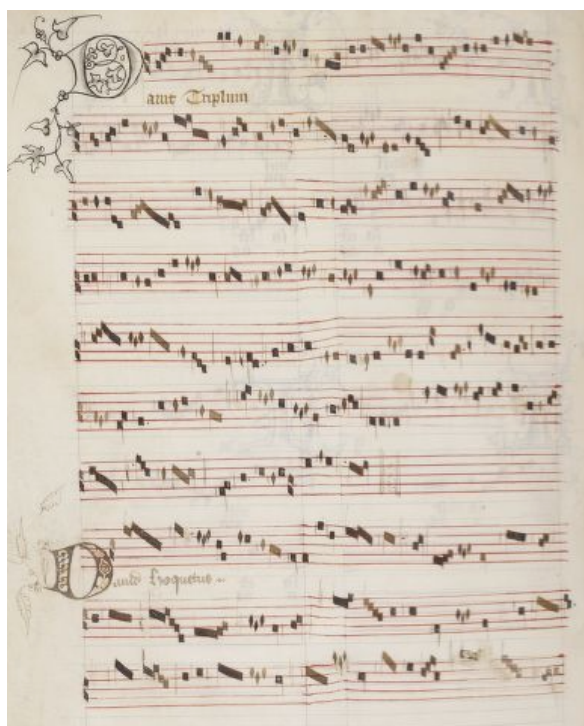 Dauit Triplum
Dauid hoquetus.